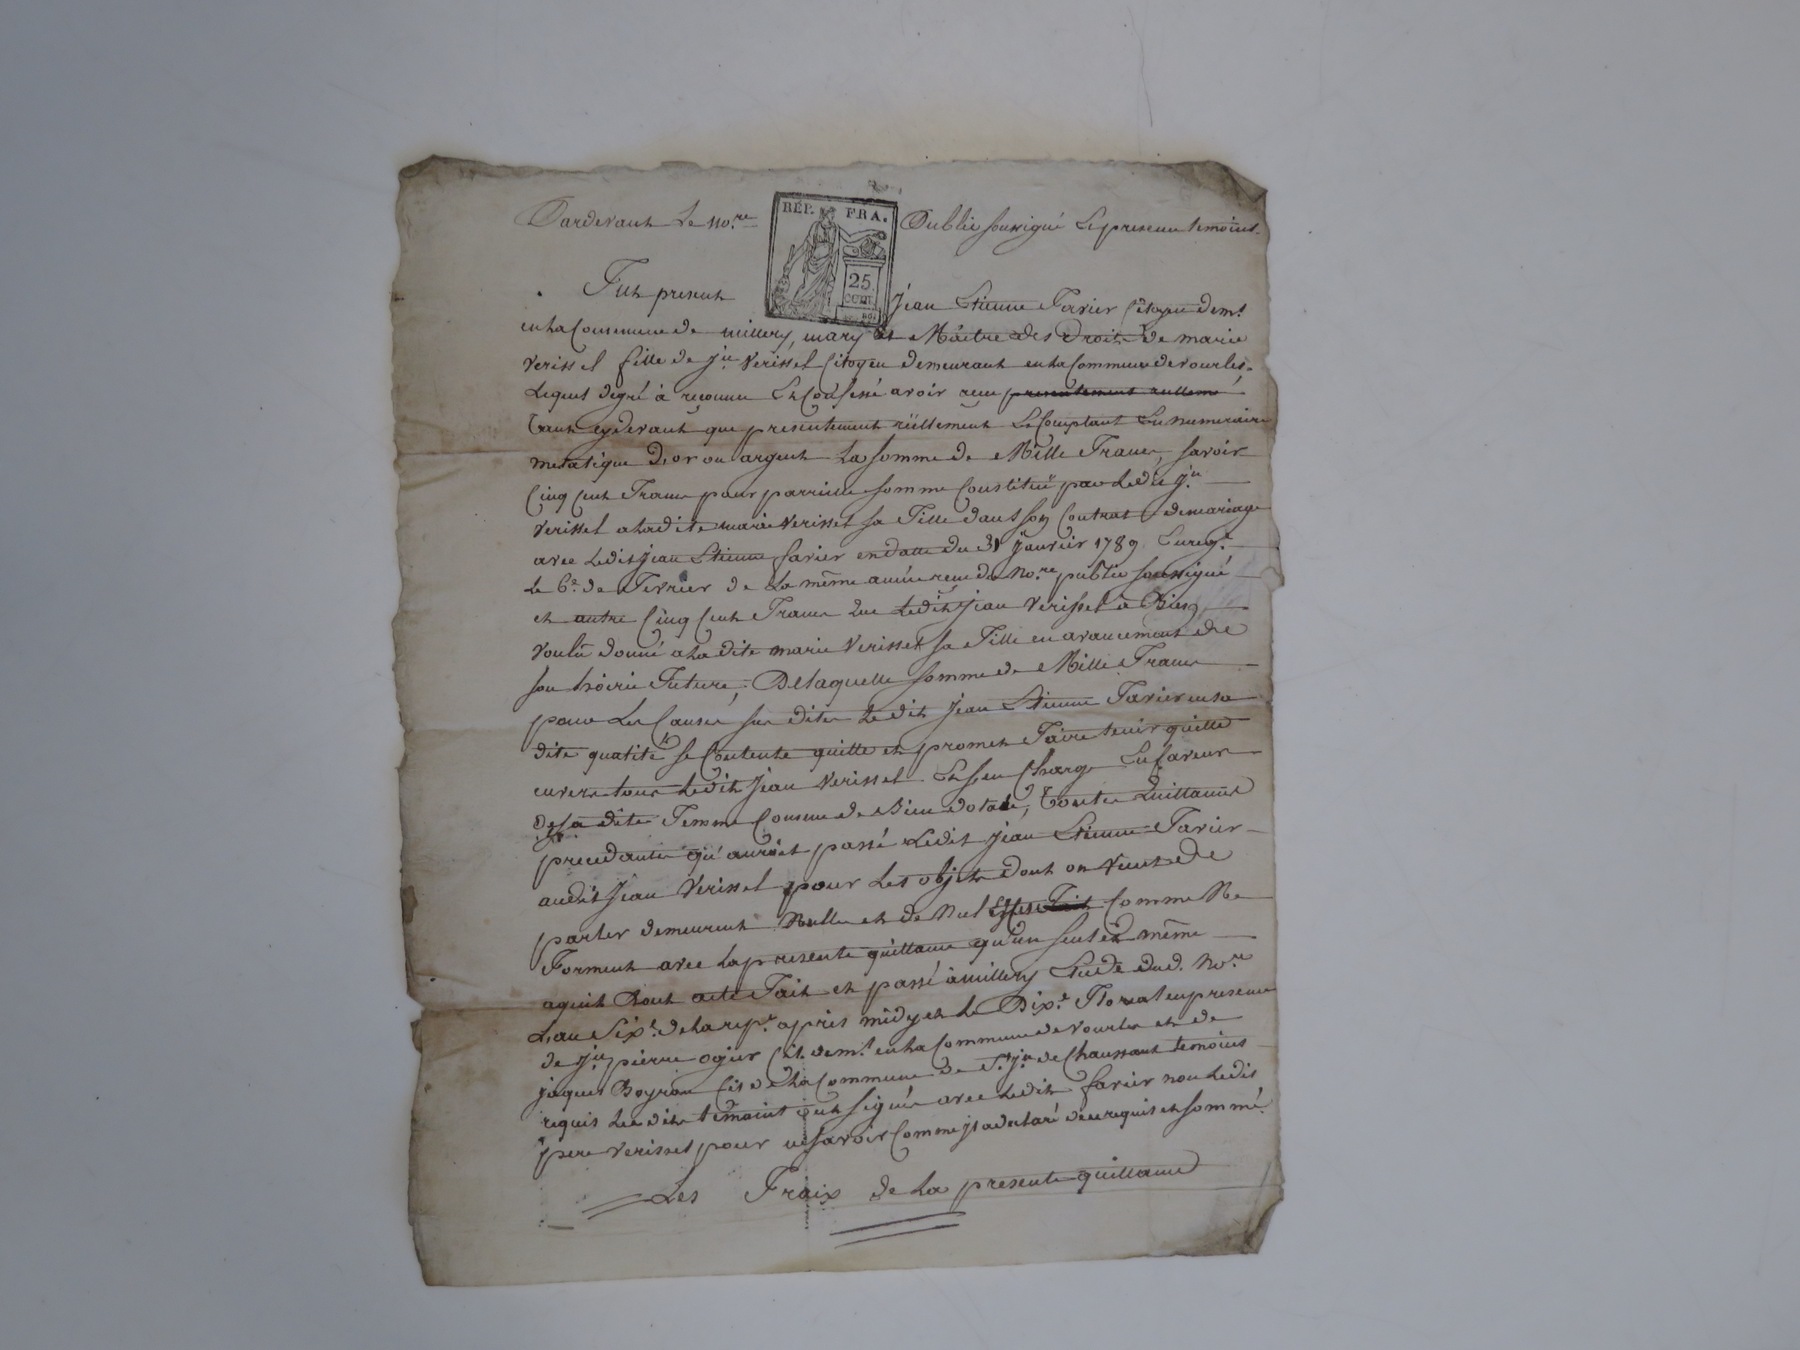 Pardevant Le No.re Public soussigné Et presence temoins.
RÉP. FRA.
25.
CENT.
Fut present Jean Etienne Favier Citoyen dem.t
en La Commune de millery, mary et Maître des Droits de marie
Verissel fille de Jn. Verissel Citoyen demeurant en La Commune de vourles.
Lequel degré à reconnu Et Confessé avoir reçu presentement rëellemt
Tant cydevant que presentement rëellement Et Comptant En Numeraire
metalique D'or ou argent La somme de Mille Francs, savoir
Cinq Cent Francs pour parreille somme Constituë par Ledit Jn.
Verissel a Ladite marie Verissel sa Fille dans son Contrat de mariage
avec Ledit Jean Etienne favier en datte du 31 Janvier 1789 Enreg.é
Le 6.e de Fevrier de La même année reçu du No.re public soussigné
et autre Cinq Cent Francs que Ledit Jean Verissel à Bien
voulû donné a La dite marie Verissel sa Fille en avancement de
son hoirie Future, De Laquelle somme de Mille Francs
pour Les Causes sus dites Ledit Jean Etienne Favier en sa
dite qualité se Contente quitte et promet Faire tenir quitte
envers tous Ledit Jean Verissel. Et s'en Charge En faveur
De sa dite Femme Comme de Bien dotale, Toutes Quittances
precedantes qu'auroit passé Ledit Jean Etienne Favier
audit Jean Verissel pour Les objets dont on vient de
parler demeurent Nulles et de Nul Effet Comme Ne
Forment avec La presente quittance qu'un seul et même
aquit Dont acte Fait et passé à millery Etude dud. No.re
L'an Six.e de La rep.e après midy et Le Dix.e Floreal en presence
de Jn. pierre ogier Cit. dem.t en La Commune de Vourles et de
jaques Boyron Cit de La Commune de St. Jn. de Chaussant temoins
requis Les dits temoins ont signés avec Ledit favier non Ledit
pere Verissel pour ne savoir Comme il a declaré de ce requis et sommé.
Les Fraix de La presente quittance